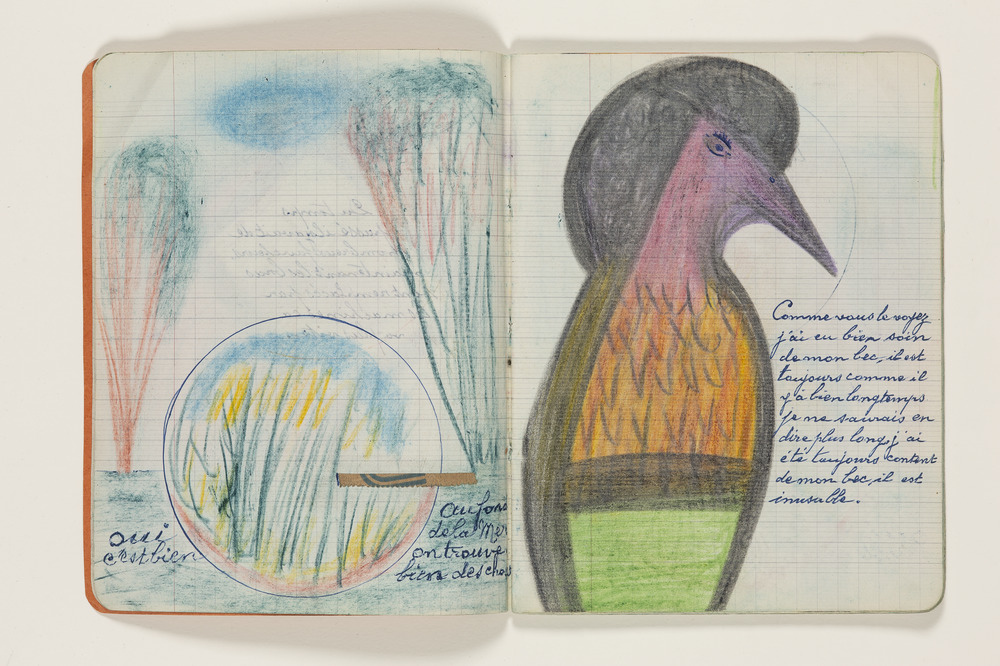 oui
c'est bien
au fond
de la Mer
on trouve
bien des chos
Comme vous le voyez
j'ai eu bien soin
de mon bec, il est
toujours comme il
y à bien longtemps
je ne saurais en
dire plus long, j'ai
été toujours content
de mon bec, il est
inusable.